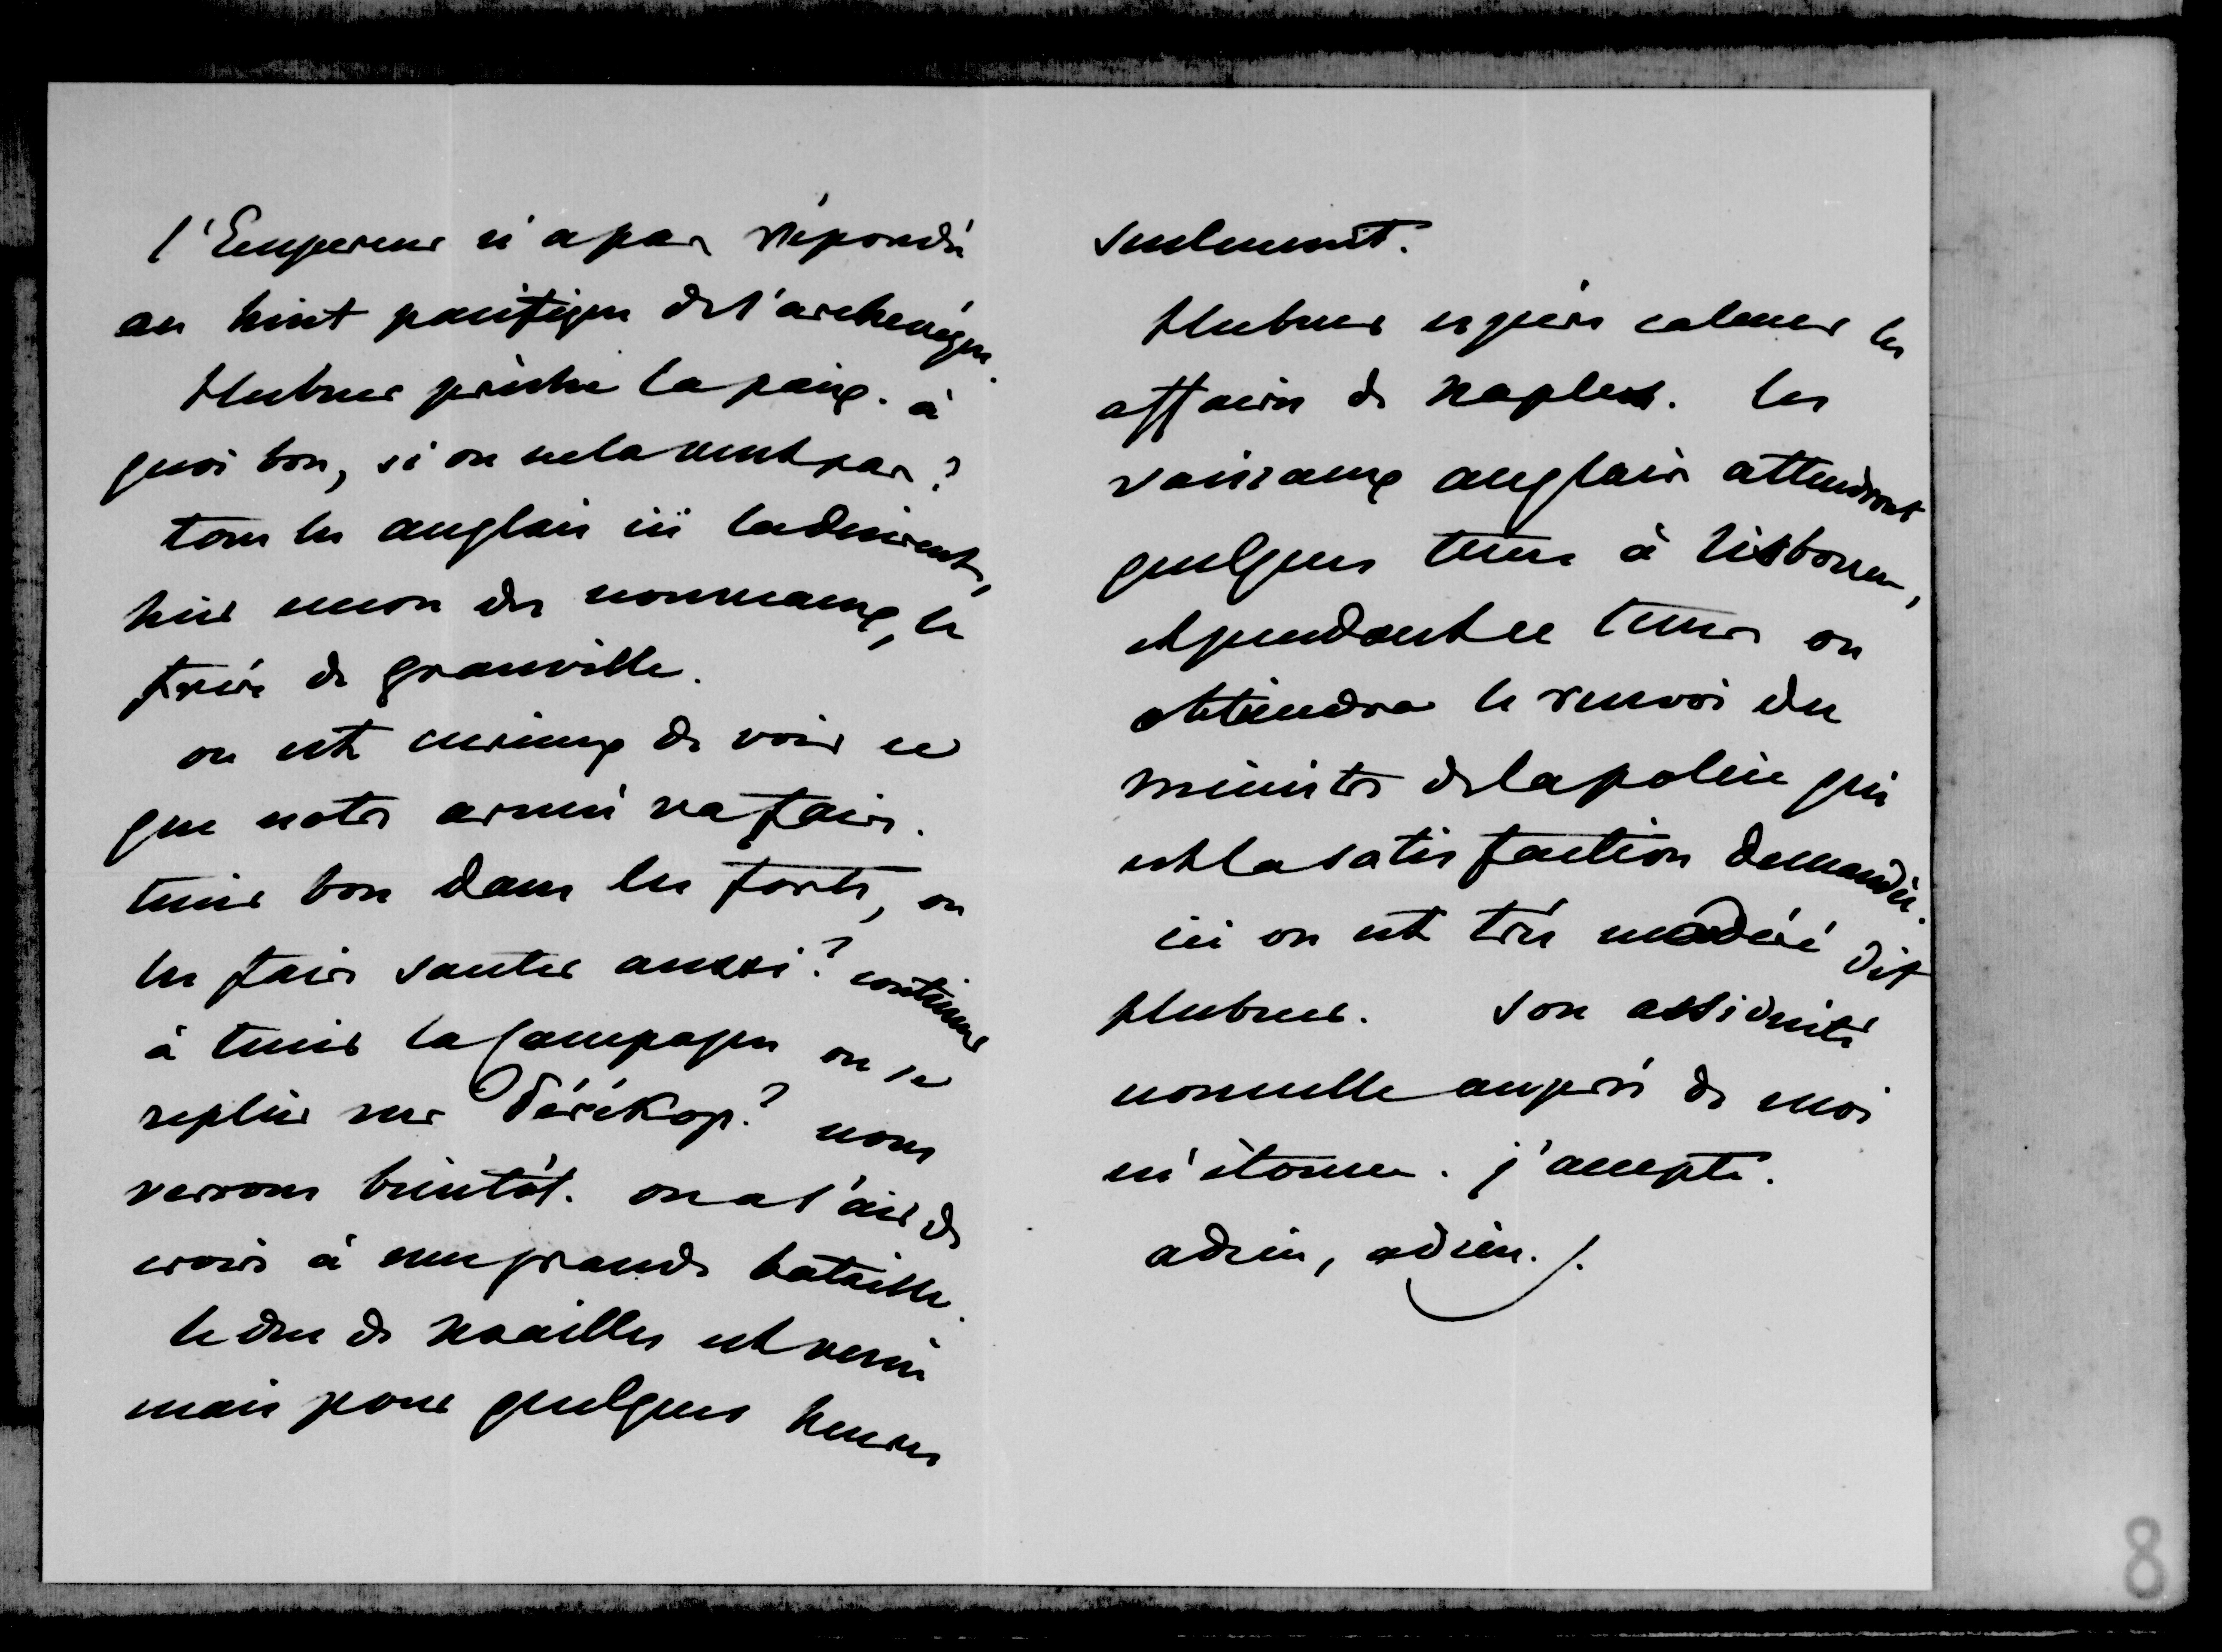 l'Empereur n'a pas répondu
au hint pacifique de l'archevêque.
Hubner prêche la paix. à
quoi bon, si on ne la veut pas?
tous les anglais ici la désirent,
hier encore des nouveaux, le
frère de Granville.
on est curieux de voir ce
que notre armée va faire.
tenir bon dans les forts, ou
les faire sauter aussi? continuer
à tenir la Campagne ou se
replier sur Pérékop? nous
verrons bientôt. on a l'air de
croire à une grande bataille.
le duc de Noailles est venu
mais pour quelques heures
seulement.
Hubner espère calmer les
affaires de Naples. les
vaisseaux anglais attendront
quelques tems à Lisbonne,
et pendant ce tems on
obtiendra le renvoi du
ministre de la police qui
est la satisfaction demandée.
ici on est très modéré dit
Hubner. son assiduité
nouvelle auprès de moi
m'étonne. j'accepte.
adieu, adieu./.
8